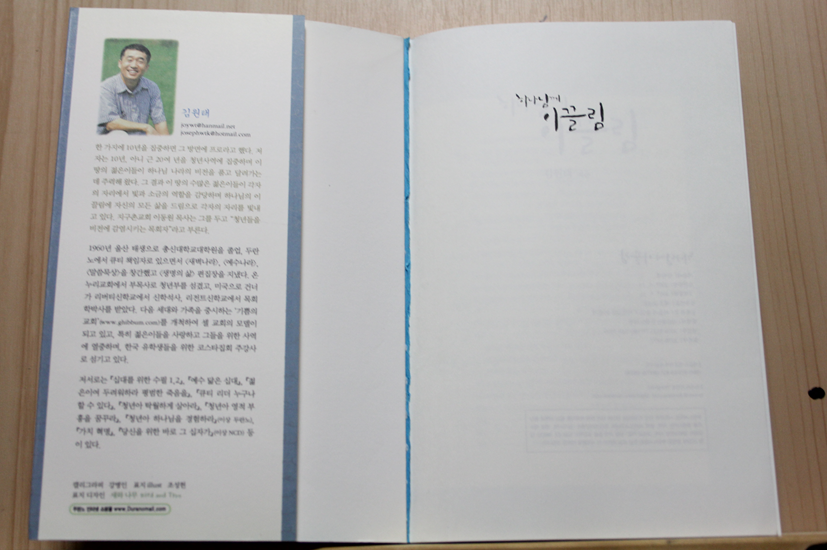 김원태
joywt@hanmail.net
josephwtk@hotmail.com
한 가지에 10년을 집중하면 그 방면에 프로라고 했다. 저
자는 10년, 아니 근 20여 년을 청년사역에 집중하며 이
땅의 젊은이들이 하나님 나라의 비전을 품고 달려가는
데 주력해 왔다. 그 결과 이 땅의 수많은 젊은이들이 각자
의 자리에서 빛과 소금의 역할을 감당하며 하나님의 이
끌림에 자신의 모든 삶을 드림으로 각자의 자리를 빛내
고 있다. 지구촌교회 이동원 목사는 그를 두고 "청년들을
비전에 감염시키는 목회자"라고 부른다.
1960년 울산 태생으로 총신대학교대학원을 졸업, 두란
노에서 큐티 책임자로 있으면서 <새벽나라>, <예수나라>,
<말씀묵상>을 창간했고 <생명의 삶> 편집장을 지냈다. 온
누리교회에서 부목사로 청년부를 섬겼고, 미국으로 건너
가 리버티신학교에서 신학석사, 리전트신학교에서 목회
학박사를 받았다. 다음 세대와 가족을 중시하는 "기쁨의
교회"(www.gbhbum.com)를 개척하여 셀 교회의 모델이
되고 있고, 특히 젊은이들을 사랑하고 그들을 위한 사역
에 열중하며, 한국 유학생들을 위한 코스타집회 주강사
로 섬기고 있다.
저서로는 『십대를 위한 수필 1,2』, 『예수 닮은 십대』, 『젊
은이여 두려워하라 평범한 죽음을』, 『큐티 리더 누구나
할 수 있다』, 『청년아 탁월하게 살아라』, 『청년아 영적 부
흥을 꿈꾸라』, 『청년아 하나님을 경험하라』(이상 두란노),
『가치 혁명』, 『당신을 위한 바로 그 십자가』(이상 NCD) 등
이 있다.
캘리그라피 강병인 표지 illust 조성헌
표지 디자인
두란노 인터넷 쇼핑몰 www.Duranomall.com
하나님께
이끌림